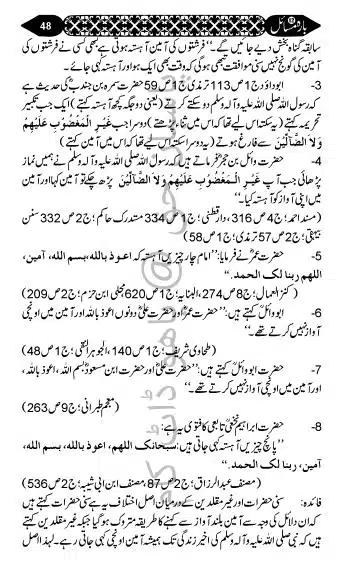 48
بارہ مسائل
سابقہ گناہ بخش دیے جائیں گے۔“ فرشتوں کی آمین آہستہ ہوتی ہے کبھی کسی نے فرشتوں کی
آمین کی گونج نہیں سنی موافقت بھی ہوگی کہ وقت بھی ایک ہو اور آہستہ کہی جائے۔
3- ابوداؤد ج1 ص113 ترمذی ج1 ص59 حضرت سمرہ بن جندبؓ کی حدیث ہے
کہ رسول اللہ صلی اللہ علیہ وآلہ وسلم دو سکتے کرتے (یعنی دو جگہ کچھ آہستہ کہتے) ایک جب تکبیر
تحریمہ کہتے (یہ سکتہ اس لیے تھا کہ اس میں ثنا پڑھتے) دوسرا جب غَيْرِ الْمَغْضُوْبِ عَلَيْهِمْ
وَلَا الضَّآلِّيْنَ سے فارغ ہوتے (یہ دوسرا سکتہ اس لیے تھا کہ اس میں آمین کہتے)
4- حضرت وائل بن حجرؓ فرماتے ہیں کہ رسول اللہ صلی اللہ علیہ وآلہ وسلم نے ہمیں نماز
پڑھائی جب آپ غَيْرِ الْمَغْضُوْبِ عَلَيْهِمْ وَلَا الضَّآلِّيْنَ پڑھ چکے تو آمین کہا اور آمین
میں اپنی آواز کو آہستہ کیا۔“
(مسند احمد؛ ج4 ص316، دارقطنی؛ ج1 ص334 مستدرک حاکم؛ ج2 ص332 سنن
بیہقی؛ ج2 ص57 ترمذی؛ ج1 ص58)
5- حضرت عمرؓ نے فرمایا: ”امام چار چیزیں آہستہ کہے اعوذ باللہ، بسم اللہ، آمین،
اللھم ربنا لک الحمد۔“
(کنز العمال؛ ج8 ص274، البنایہ؛ ج1 ص620 محلی ابن حزم؛ ج2 ص209)
6- ابووائلؓ کہتے ہیں: ”حضرت عمرؓ اور حضرت علیؓ دونوں اعوذ باللہ اور آمین میں اونچی
آواز نہیں کرتے تھے۔“
(طحاوی شریف؛ ج1 ص140، الجوہر النقی؛ ج1 ص48)
7- حضرت ابووائلؓ کہتے ہیں: ”حضرت علیؓ اور حضرت ابن مسعودؓ بسم اللہ، اعوذ باللہ،
اور آمین میں اونچی آواز نہیں کرتے تھے۔“
(معجم طبرانی؛ ج9 ص263)
8- حضرت ابراہیم نخعیؒ تابعی کا فتویٰ یہ ہے:
”پانچ چیزیں آہستہ کہی جاتی ہیں: سبحانک اللھم، اعوذ باللہ، بسم اللہ،
آمین، ربنا لک الحمد۔“
(مصنف عبدالرزاق؛ ج2 ص87 مصنف ابن ابی شیبہ؛ ج2 ص536)
فائدہ: سنی حضرات اور غیر مقلدین کے درمیان اصل اختلاف یہ ہے سنی حضرات کہتے ہیں
کہ ان دلائل کی وجہ سے آمین بلند آواز سے کہنے کا طریقہ متروک ہو گیا جبکہ غیر مقلدین کہتے
ہیں کہ نبی صلی اللہ علیہ وآلہ وسلم کی اخیر زندگی تک ہمیشہ آمین اونچی کہی جاتی رہے۔ لہٰذا اصل